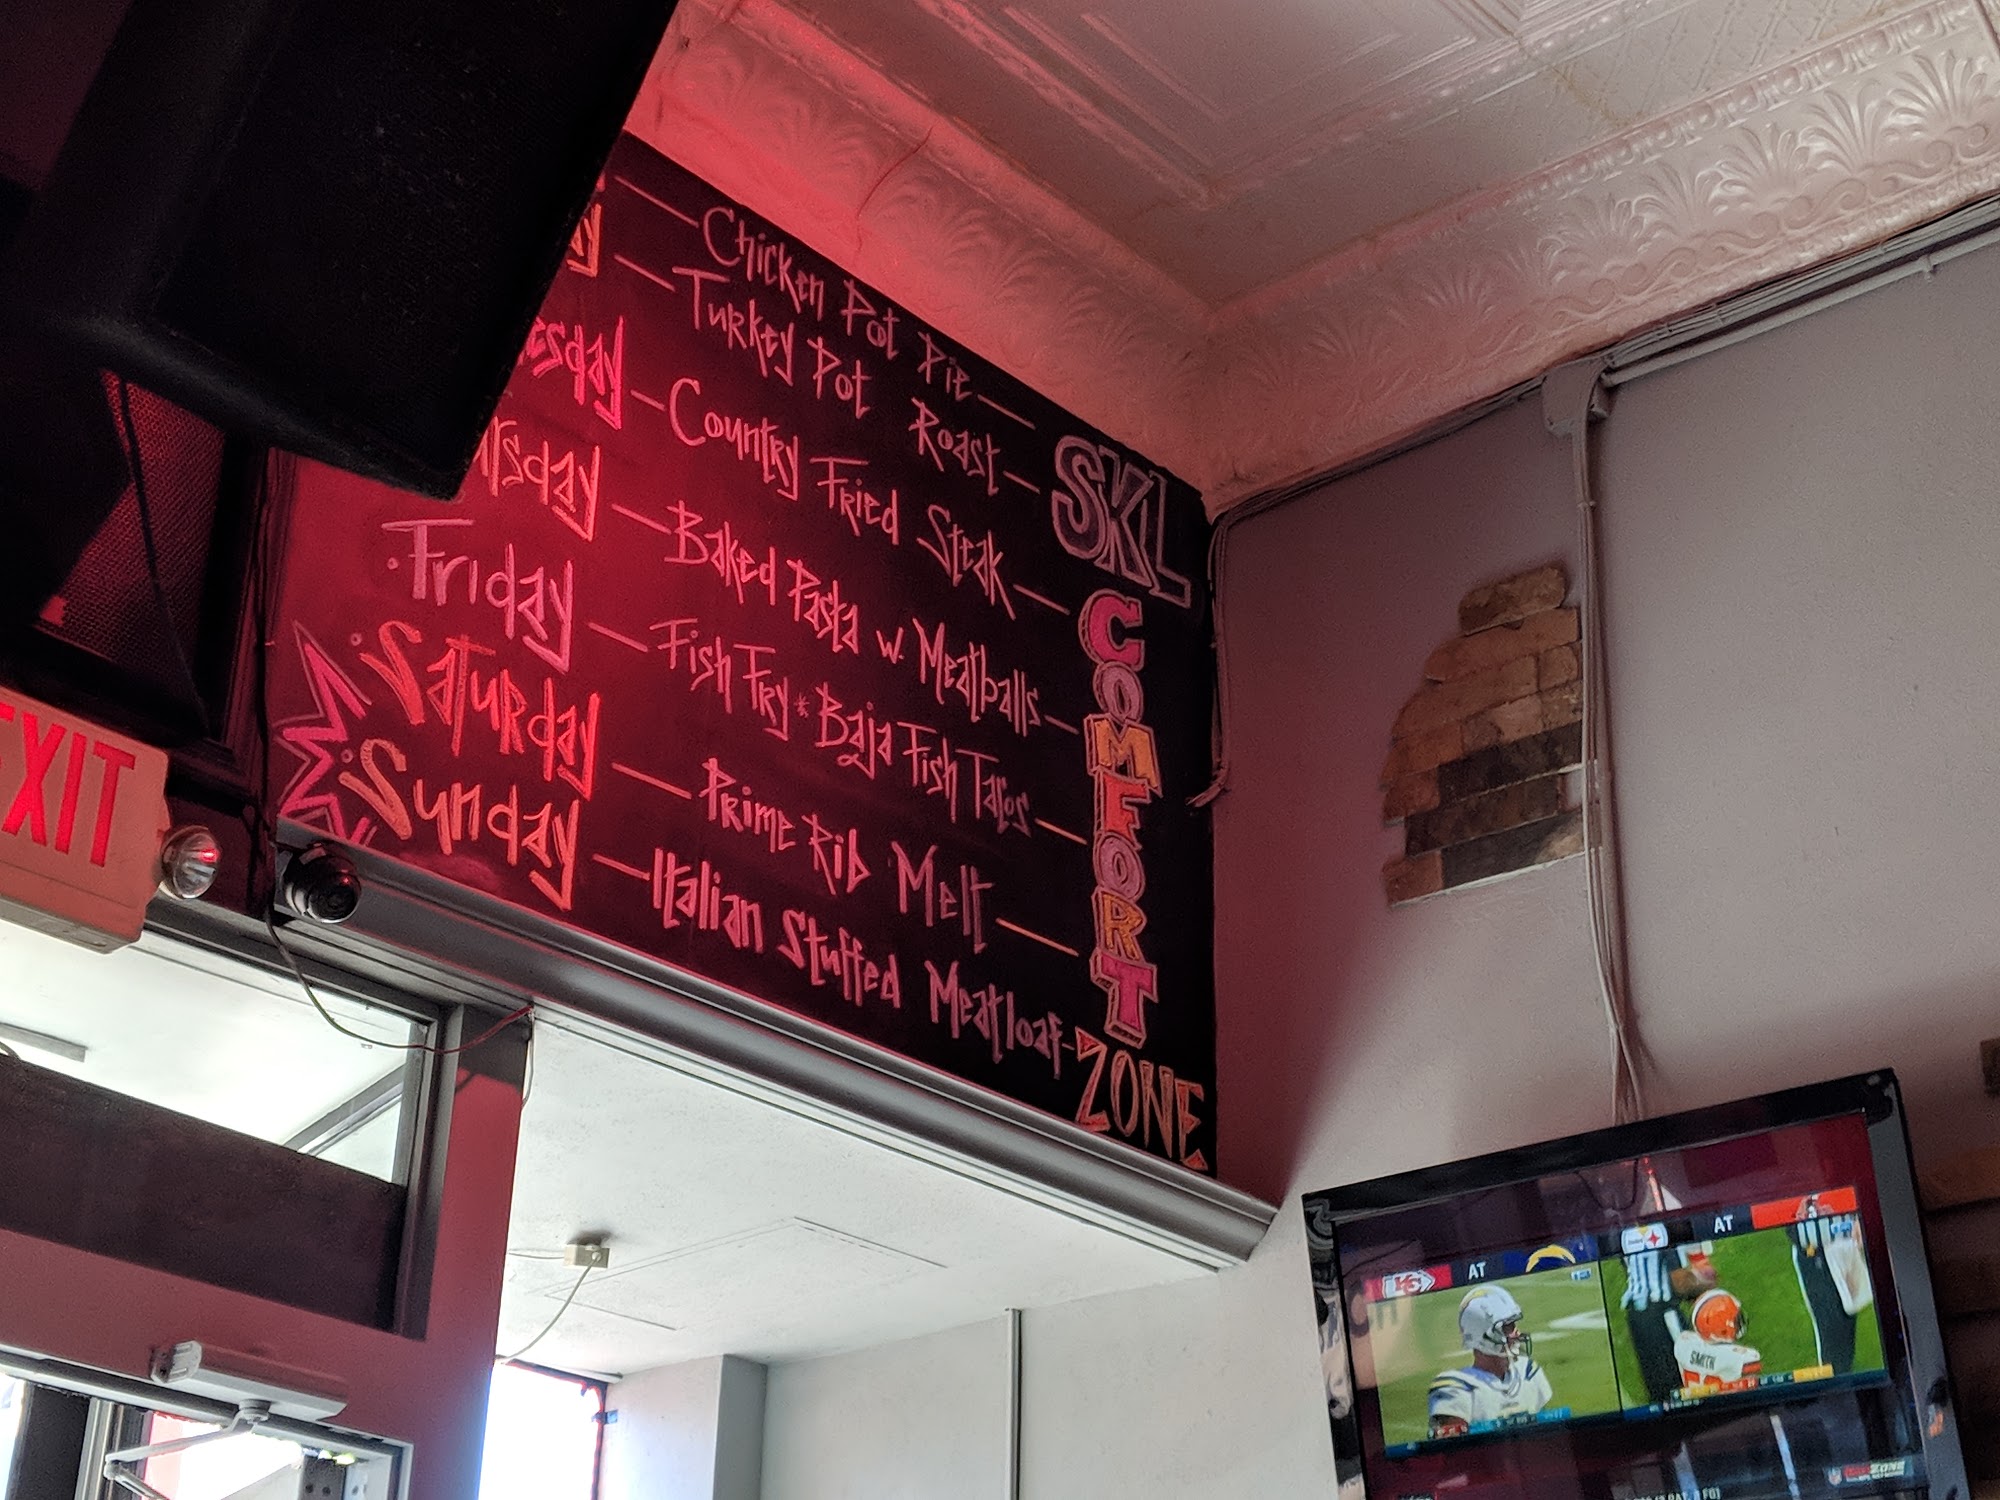 Chicken Pot Pie
Turkey Pot Roast
Country Fried Steak
Baked Pasta w. Meatballs
Friday — Fish Fry * Baja Fish Tacos
Saturday — Prime Rib Melt
Sunday — Italian Stuffed Meatloaf
SKL
COMFORT
ZONE
EXIT
AT
AT
SMITH